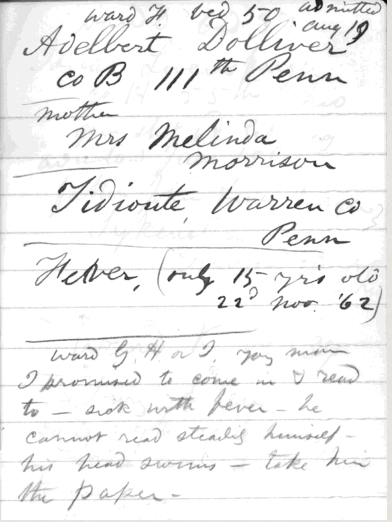 ward H. bed 50 admitted
aug 19
Adelbert Dolliver
co B 111th Penn
mother
Mrs Melinda
Morrison
Tidioute, Warren co
Penn
Fever, (only 15 yrs old
22d Nov. '62)
ward G, H or I, yng man
I promised to come in & read
to – sick with fever – he
cannot read steadily himself –
his head swims – take him
the paper –